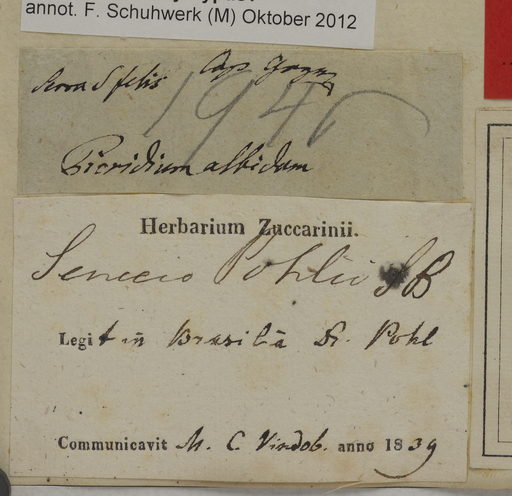 annot. F. Schuhwerk (M) Oktober 2012
felis
194
Picridium albidum
Herbarium Zuccarinii.
Senecio Pohlii SB
Legit in Brasilia Dr. Pohl
Communicavit M. C. Vindob. anno 1839